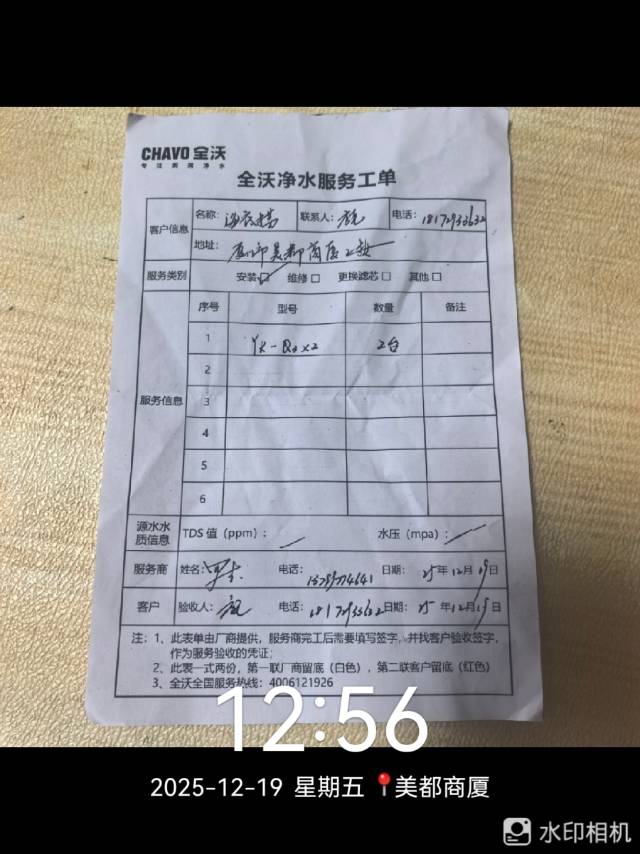 CHAVO 全沃
专注商用净水
全沃净水服务工单
客户信息 名称： 联系人： 电话：18172933632
地址： 美都商厦
服务类别 安装☑ 维修□ 更换滤芯□ 其他□
服务信息 序号 型号 数量 备注
1 2台
2
3
4
5
6
源水水质信息 TDS 值（ppm）：／ 水压（mpa）：／
服务商 姓名： 电话： 日期：25年12月19日
客户 验收人： 电话：18172933632 日期：25年12月19日
注：1、此表单由厂商提供，服务商完工后需要填写签字，并找客户验收签字，
作为服务验收的凭证；
2、此表一式两份，第一联厂商留底（白色），第二联客户留底（红色）
3、全沃全国服务热线：4006121926
12:56
2025-12-19 星期五 📍美都商厦
水印相机